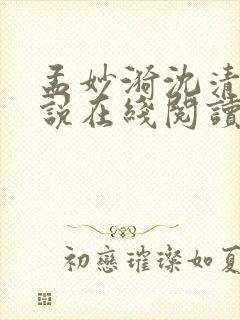 孟妙漪沈清
說在綫閱讀
初戀璀璨如夏